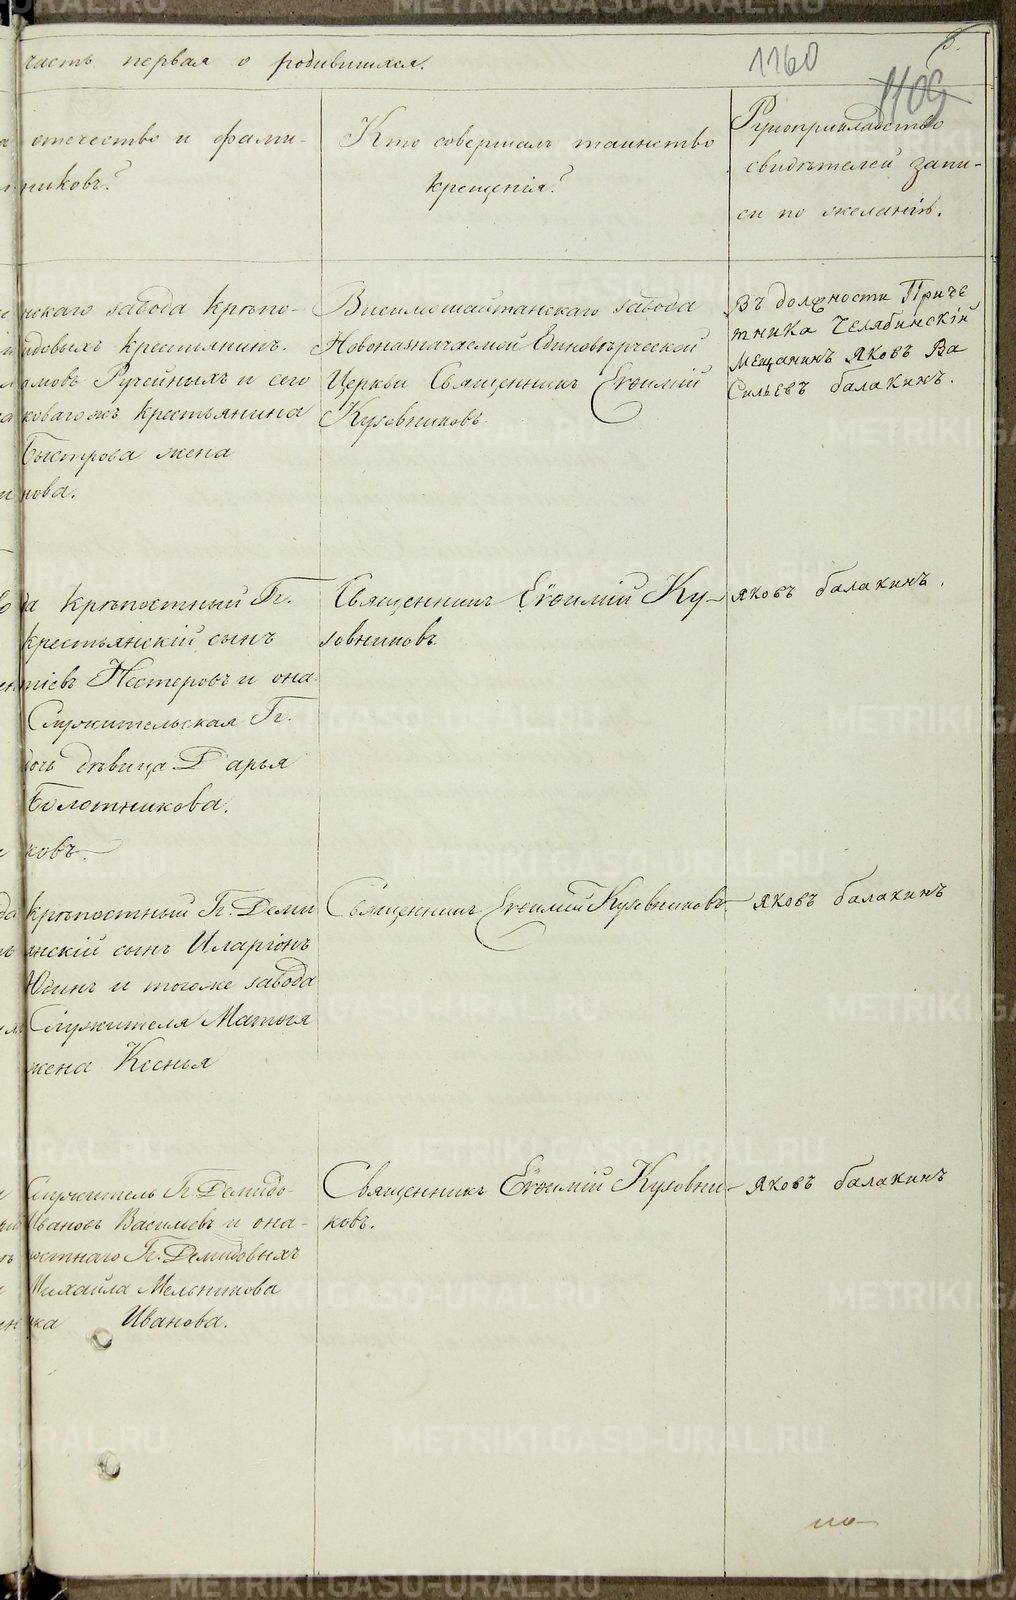 часть первая о родившихся.
1160
1109
отечество и фами-
никовъ?
Кто совершалъ таинство
крещенія?
Рукоприкладство
свидѣтелей запи-
си по желанію.
нскаго завода Крѣпо-
идовыхъ крестьянинъ
Ручейныхъ и сего
коваго жъ крестьянина
Быстрова жена
нова.
Висимошайтанскаго завода
Новоназначаемой Единовѣрческой
Церкви Священникъ Евѳимій
Кузовниковъ.
Въ должности Приче
тника Челябинскій
Мещанинъ Яковъ Ва
сильевъ балакинъ.
да крѣпостный Гг.
крестьянскій сынъ
Нестеровъ и она
Служительская Гг.
дочь дѣвица Дарья
Болотникова.
ковъ.
Священникъ Евѳимій Ку-
зовниковъ.
Яковъ балакинъ.
крѣпостный Гг. Деми
янскій сынъ Иларіонъ
Юдинъ и тогоже завода
Служителя Матѳея
жена Ксенья
Священникъ Евѳимій Кузовниковъ
Яковъ балакинъ
Служитель Гг Демидо-
Ивановъ Васильевъ и она-
постнаго Гг. Демидовыхъ
Михайла Мельникова
Иванова.
Священникъ Евѳимій Кузовни-
ковъ.
Яковъ балакинъ
METRIKI.GASO-URAL.RU